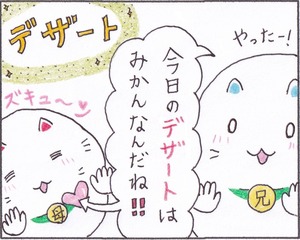 デザート
やったー!
今日のデザートは
みかんなんだね!!
ズキュ〜ン
兄
母